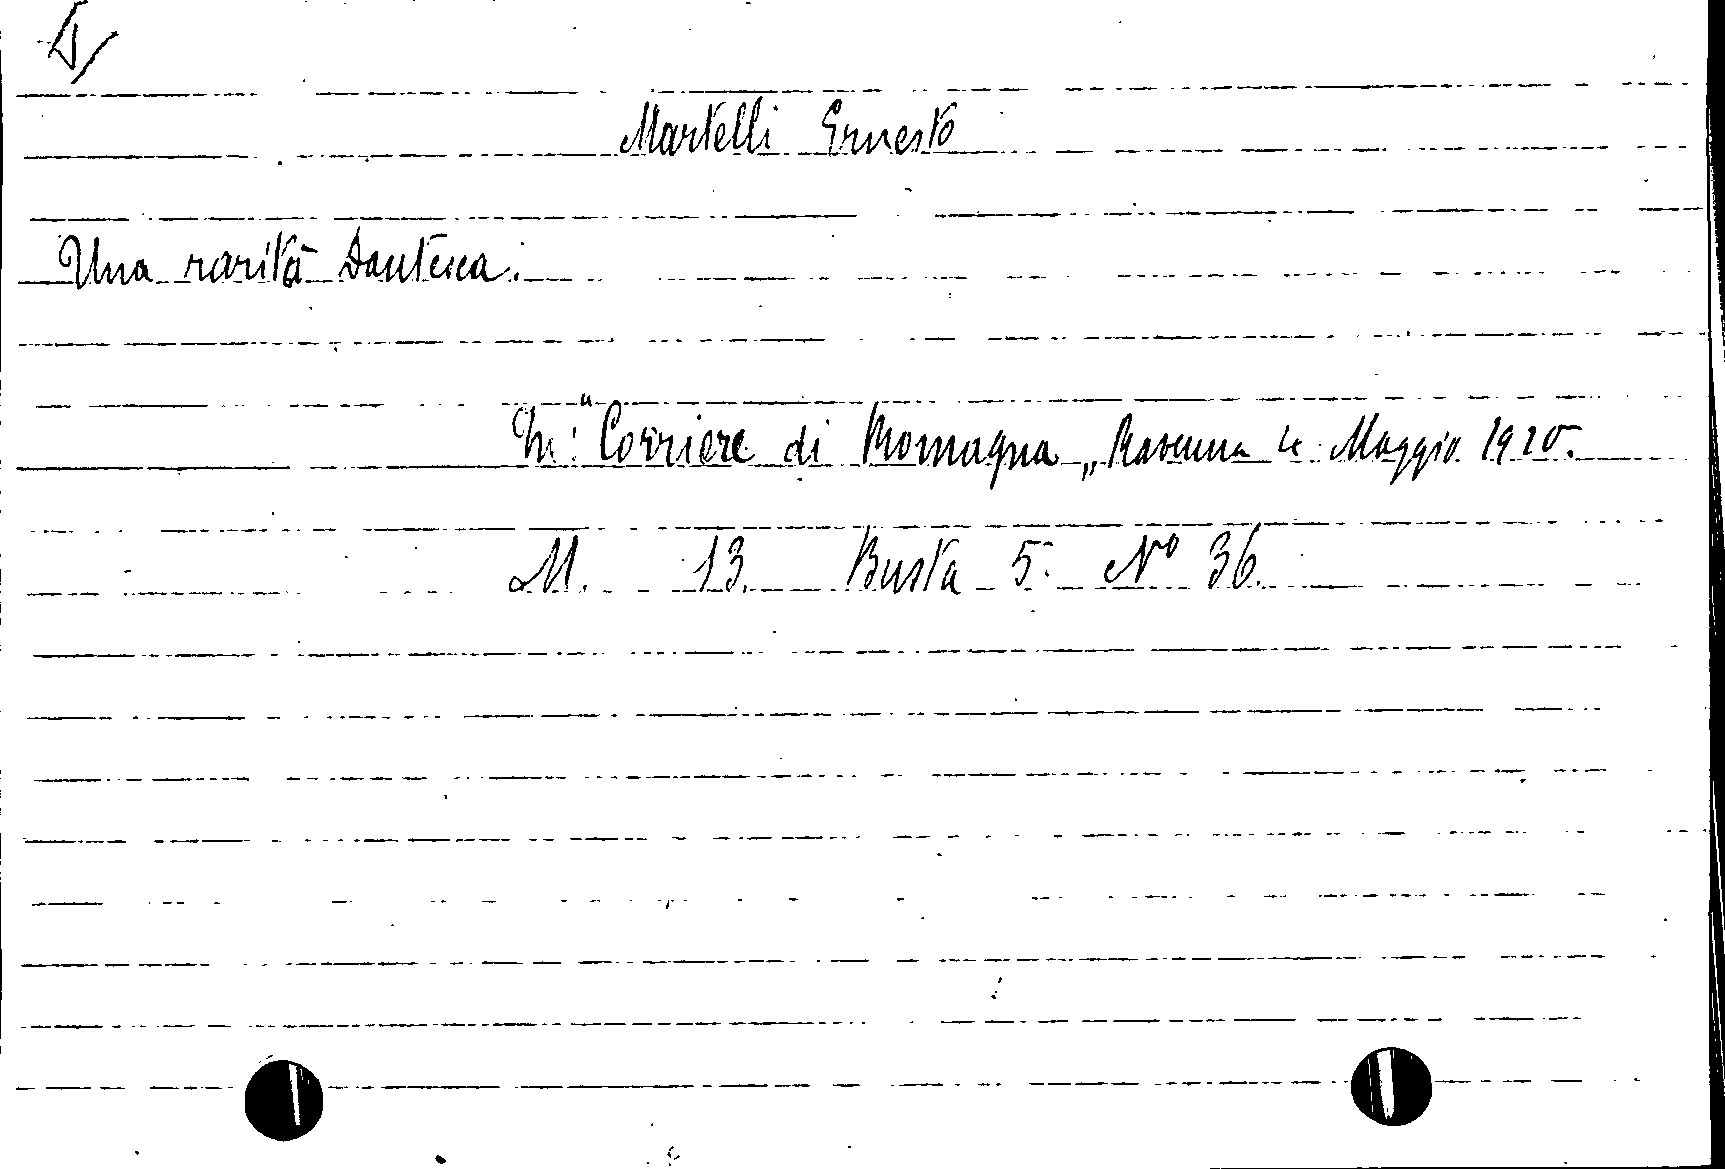 Martelli Ernesto
Una rarità Dantesca.
In: "Corriere di Romagna„ Ravenna 4 Maggio 1920.
M. 13. Busta 5. Nº 36.